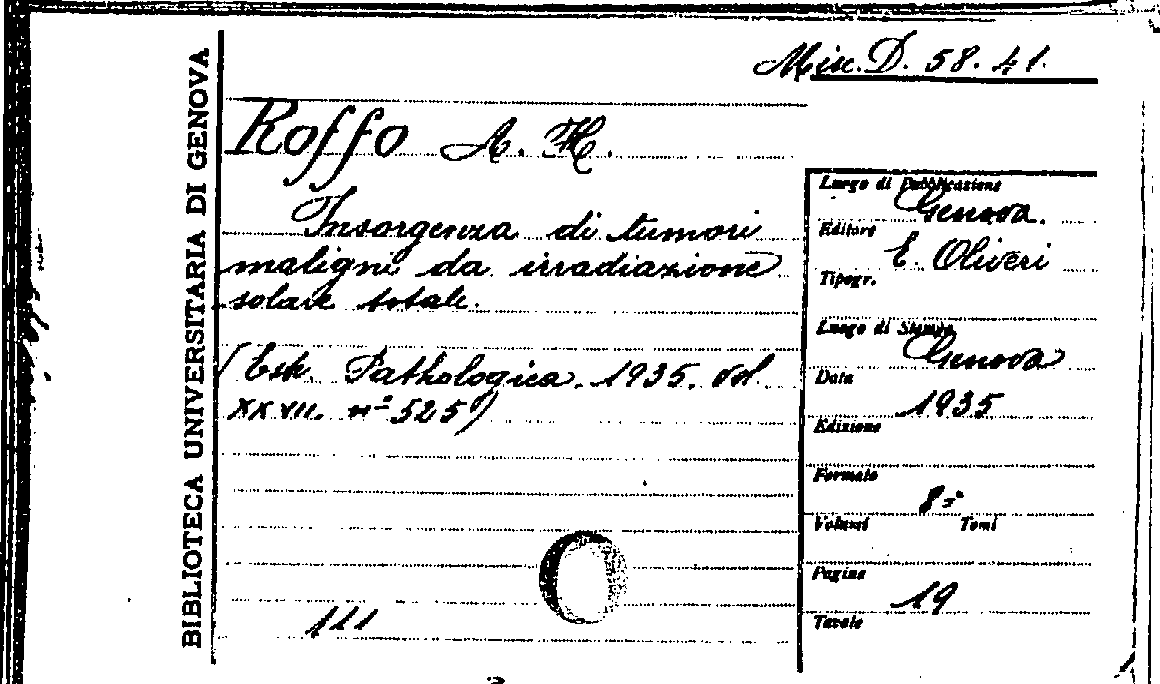 Misc. D. 58. 41.
BIBLIOTECA UNIVERSITARIA DI GENOVA
Roffo A. H.
Insorgenza di tumori
maligni da irradiazione
solare totale.
(Estr. Pathologica. 1935. vol.
XXVII. nº 525)
111
Luogo di Pubblicazione
Genova.
Editore
E. Oliveri
Tipogr.
Luogo di Stampa
Genova
Data
1935
Edizione
Formato
8º
Volumi Tomi
Pagine
19
Tavole